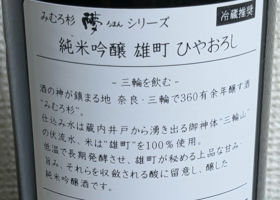 みむろ杉 夢 ろまん シリーズ
冷蔵推奨
純米吟醸 雄町 ひやおろし
- 三輪を飲む -
酒の神が鎮まる地 奈良・三輪で360有余年醸す酒
"みむろ杉"。
仕込み水は蔵内井戸から湧き出る御神体"三輪山"
の伏流水、米は"雄町"を100%使用。
低温で長期発酵させ、雄町が秘める上品な甘み・
旨み、それらを収斂される酸に留意し、醸した
純米吟醸酒です。